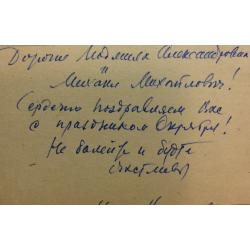 Дорогие Людмила Александровна
и
Михаил Михайлович!
Сердечно поздравляем Вас
с праздником Октября!
Не болейте и будте
счастливы